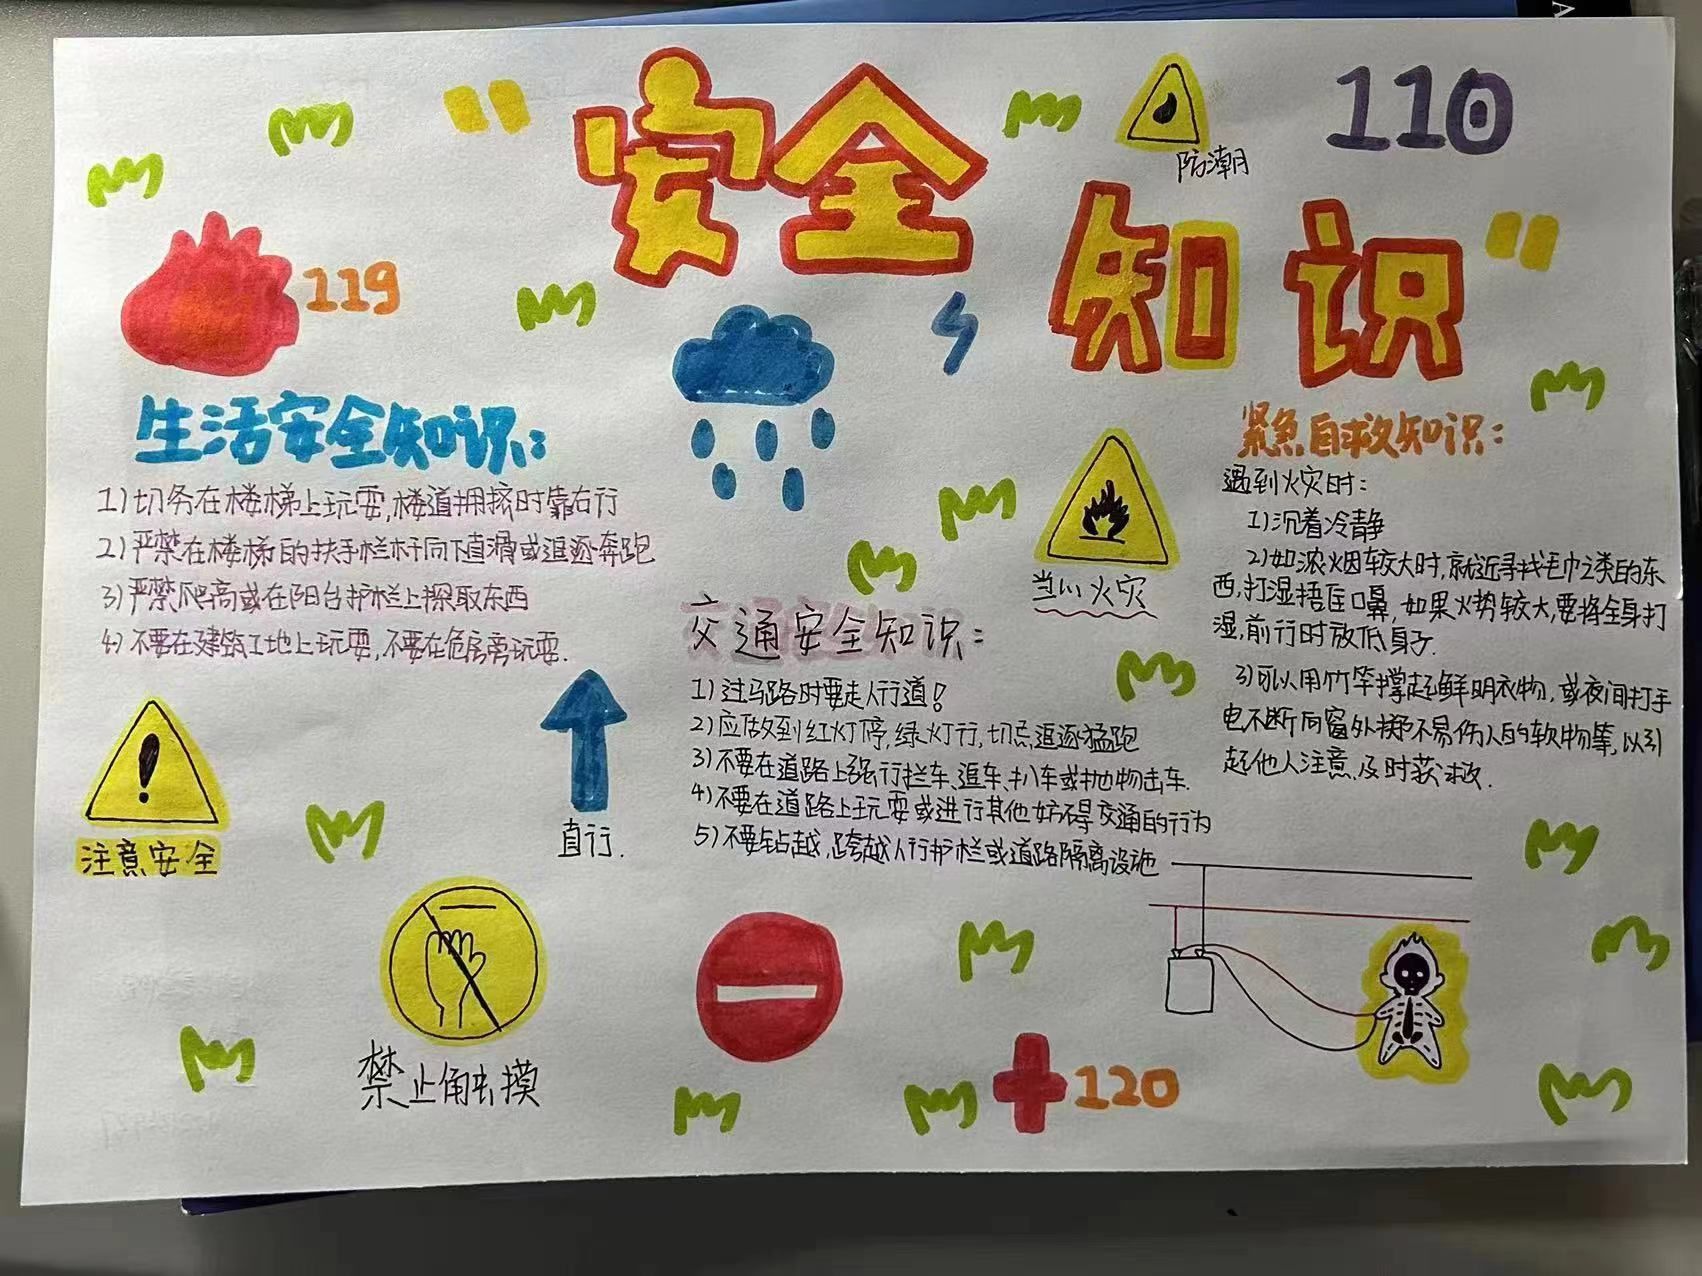 “安全
知识”
防潮
110
119
生活安全知识:
1)切务在楼梯上玩耍,楼道拥挤时靠右行
2)严禁在楼梯的扶手栏杆向下直滑或追逐奔跑
3)严禁爬高或在阳台护栏上探取东西
4)不要在建筑工地上玩耍,不要在危房旁玩耍.
注意安全
直行.
禁止触摸
当心火灾
交通安全知识:
1)过马路时要走人行道!
2)应做到红灯停,绿灯行,切忌追逐猛跑
3)不要在道路上强行拦车、追车、扒车或抛物击车.
4)不要在道路上玩耍或进行其他妨碍交通的行为
5)不要钻越,跨越人行护栏或道路隔离设施
紧急自救知识:
遇到火灾时:
1)沉着冷静
2)如浓烟较大时,就近寻找毛巾之类的东
西,打湿捂住口鼻,如果火势较大,要将全身打
湿,前行时放低身子.
3)可以用竹竿撑起鲜明衣物,或夜间打手
电不断向窗外掷不易伤人的软物等,以引
起他人注意及时获救.
120